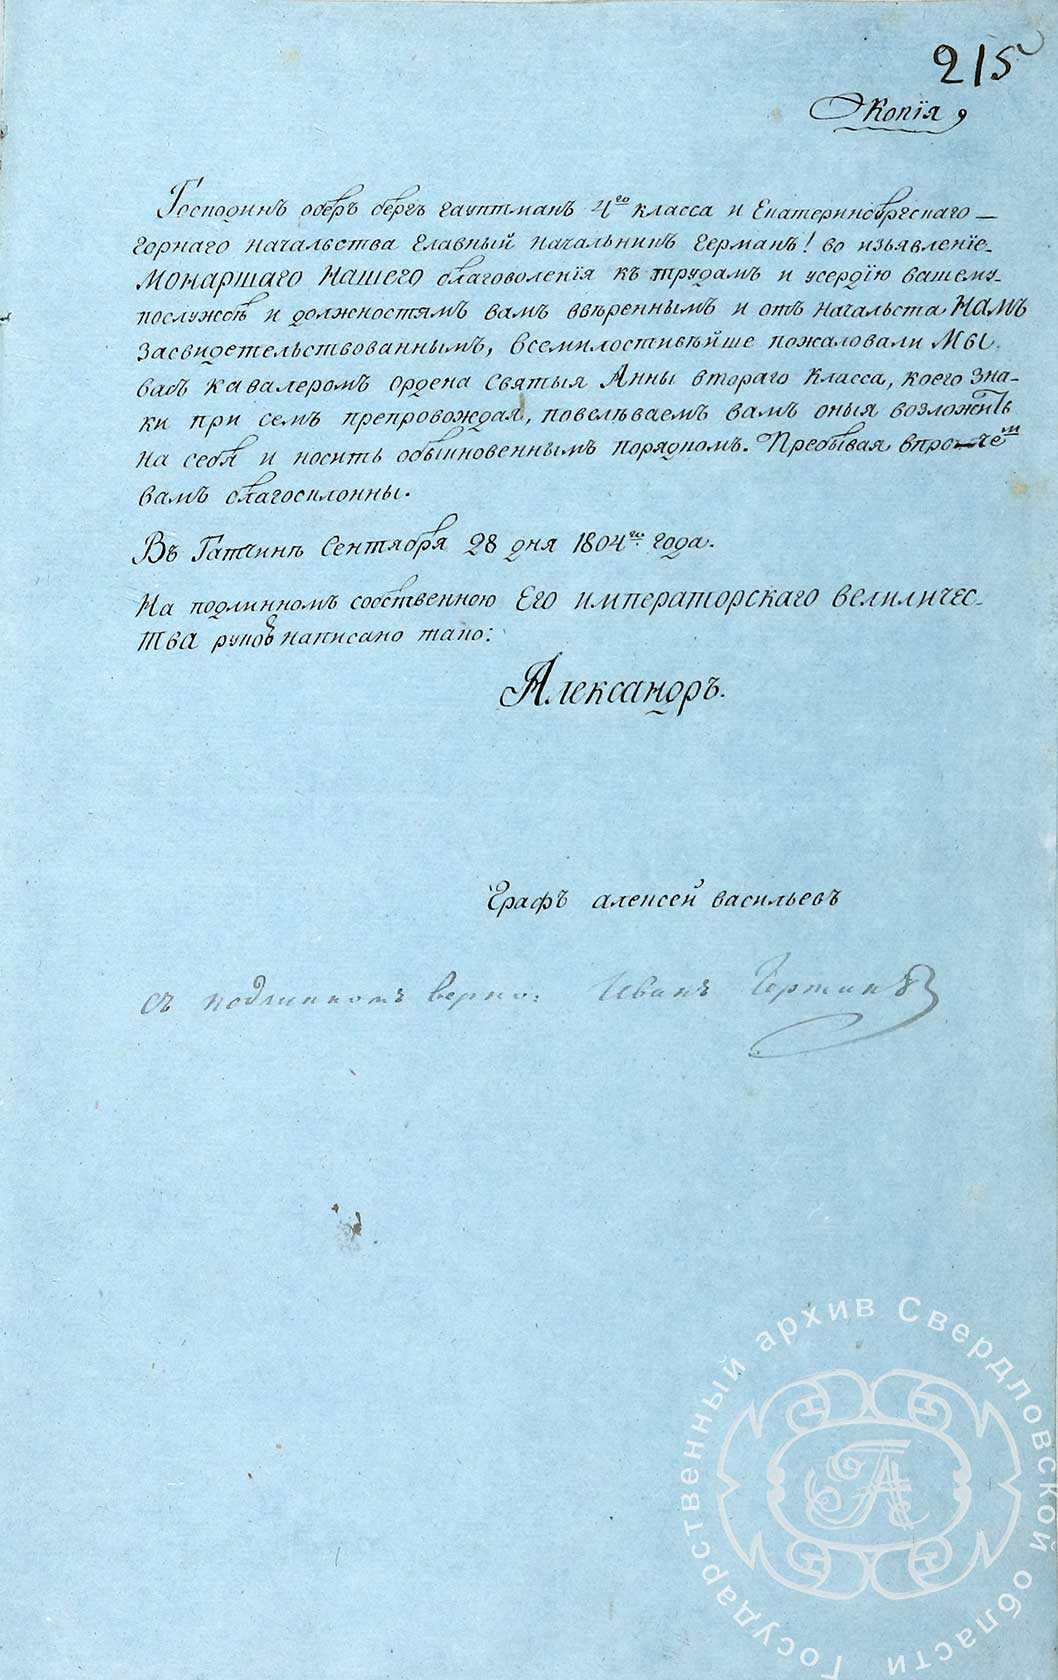 215
Копія
Господинъ оберъ бергъ гауптманъ 4го класса и Екатеринбургскаго
Горнаго начальства Главный начальникъ Германъ! во изъявленіе
Монаршаго Нашего благоволенія къ трудамъ и усердію вашему
по службѣ и должностямъ вамъ ввѣреннымъ и отъ начальства Намъ
засвидетельствованнымъ, всемилостивѣйше пожаловали Мы
васъ кавалеромъ ордена Святыя Анны втораго класса, коего зна-
ки при семъ препровождая, повелѣваемъ вамъ оныя возложить
на себя и носить обыкновеннымъ порядкомъ. Пребывая впрочемъ
вамъ благосклонны.
Въ Гатчинѣ Сентября 28 дня 1804го года.
На подлинномъ собственною Его императорскаго величес-
тва рукою написано тако:
Александръ.
Графъ алексей васильевъ
съ подлиннымъ верно: Иванъ
Государственный архив Свердловской области